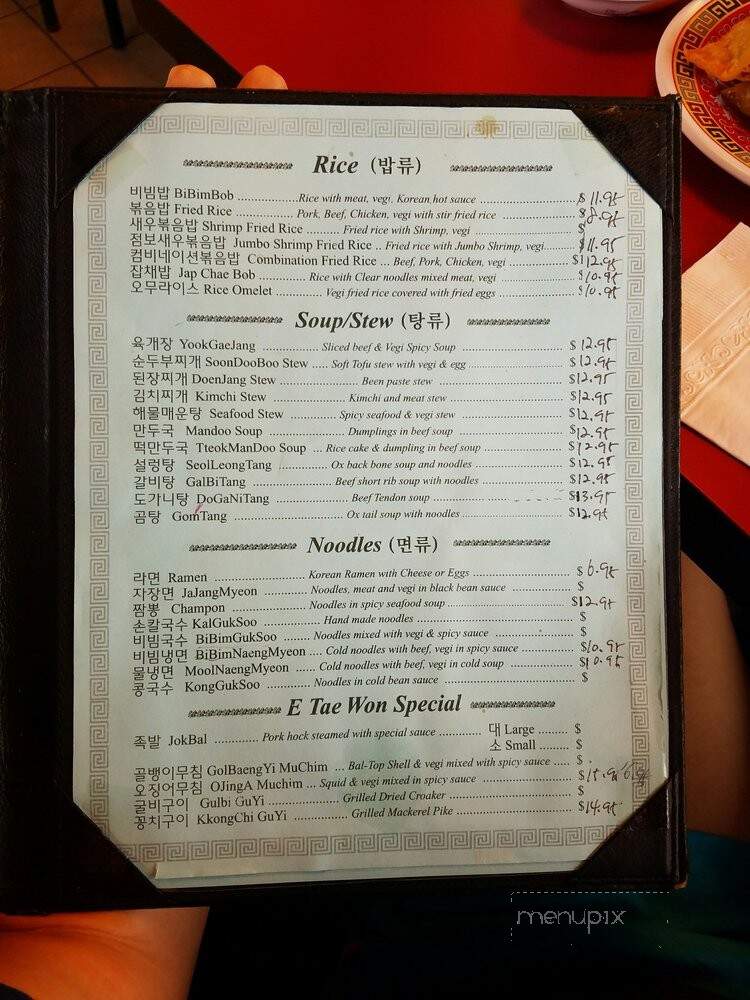 Rice (밥류)
비빔밥 BiBimBob ........ Rice with meat, vegi, Korean hot sauce ........ $ 11.95
볶음밥 Fried Rice ........ Pork, Beef, Chicken, vegi with stir fried rice ........ $ 8.95
새우볶음밥 Shrimp Fried Rice ........ Fried rice with Shrimp, vegi ........ $
점보새우볶음밥 Jumbo Shrimp Fried Rice .. Fried rice with Jumbo Shrimp, vegi........ $11.95
컴비네이션볶음밥 Combination Fried Rice ... Beef, Pork, Chicken, vegi ........ $12.95
잡채밥 Jap Chae Bob ........ Rice with Clear noodles mixed meat, vegi ........ $10.95
오무라이스 Rice Omelet ........ Vegi fried rice covered with fried eggs ........ $10.95
Soup/Stew (탕류)
육개장 YookGaeJang ........ Sliced beef & Vegi Spicy Soup ........ $12.95
순두부찌개 SoonDooBoo Stew ..... Soft Tofu stew with vegi & egg ........ $12.95
된장찌개 DoenJang Stew ........ Been paste stew ........ $12.95
김치찌개 Kimchi Stew ........ Kimchi and meat stew ........ $12.95
해물매운탕 Seafood Stew ........ Spicy seafood & vegi stew ........ $12.95
만두국 Mandoo Soup ........ Dumplings in beef soup ........ $12.95
떡만두국 TteokManDoo Soup ... Rice cake & dumpling in beef soup ........ $12.95
설렁탕 SeolLeongTang ........ Ox back bone soup and noodles ........ $12.95
갈비탕 GalBiTang ........ Beef short rib soup with noodles ........ $12.95
도가니탕 DoGaNiTang ........ Beef Tendon soup ........ $13.95
곰탕 GomTang ........ Ox tail soup with noodles ........ $12.95
Noodles (면류)
라면 Ramen ........ Korean Ramen with Cheese or Eggs ........ $ 6.95
자장면 JaJangMyeon ........ Noodles, meat and vegi in black bean sauce ........ $
짬뽕 Champon ........ Noodles in spicy seafood soup ........ $12.95
손칼국수 KalGukSoo ........ Hand made noodles ........ $
비빔국수 BiBimGukSoo ........ Noodles mixed with vegi & spicy sauce ........ $
비빔냉면 BiBimNaengMyeon .... Cold noodles with beef, vegi in spicy sauce ........ $10.95
물냉면 MoolNaengMyeon ........ Cold noodles with beef, vegi in cold soup ........ $10.95
콩국수 KongGukSoo ........ Noodles in cold bean sauce ........ $
E Tae Won Special
족발 JokBal ........ Pork hock steamed with special sauce ........ 대 Large ........ $
소 Small ......... $
골뱅이무침 GolBaengYi MuChim ... Bal-Top Shell & vegi mixed with spicy sauce ..... $
오징어무침 OJingA Muchim ... Squid & vegi mixed in spicy sauce ........ $15.95
굴비구이 Gulbi GuYi ........ Grilled Dried Croaker ........ $
꽁치구이 KkongChi GuYi ........ Grilled Mackerel Pike ........ $14.95
menupix